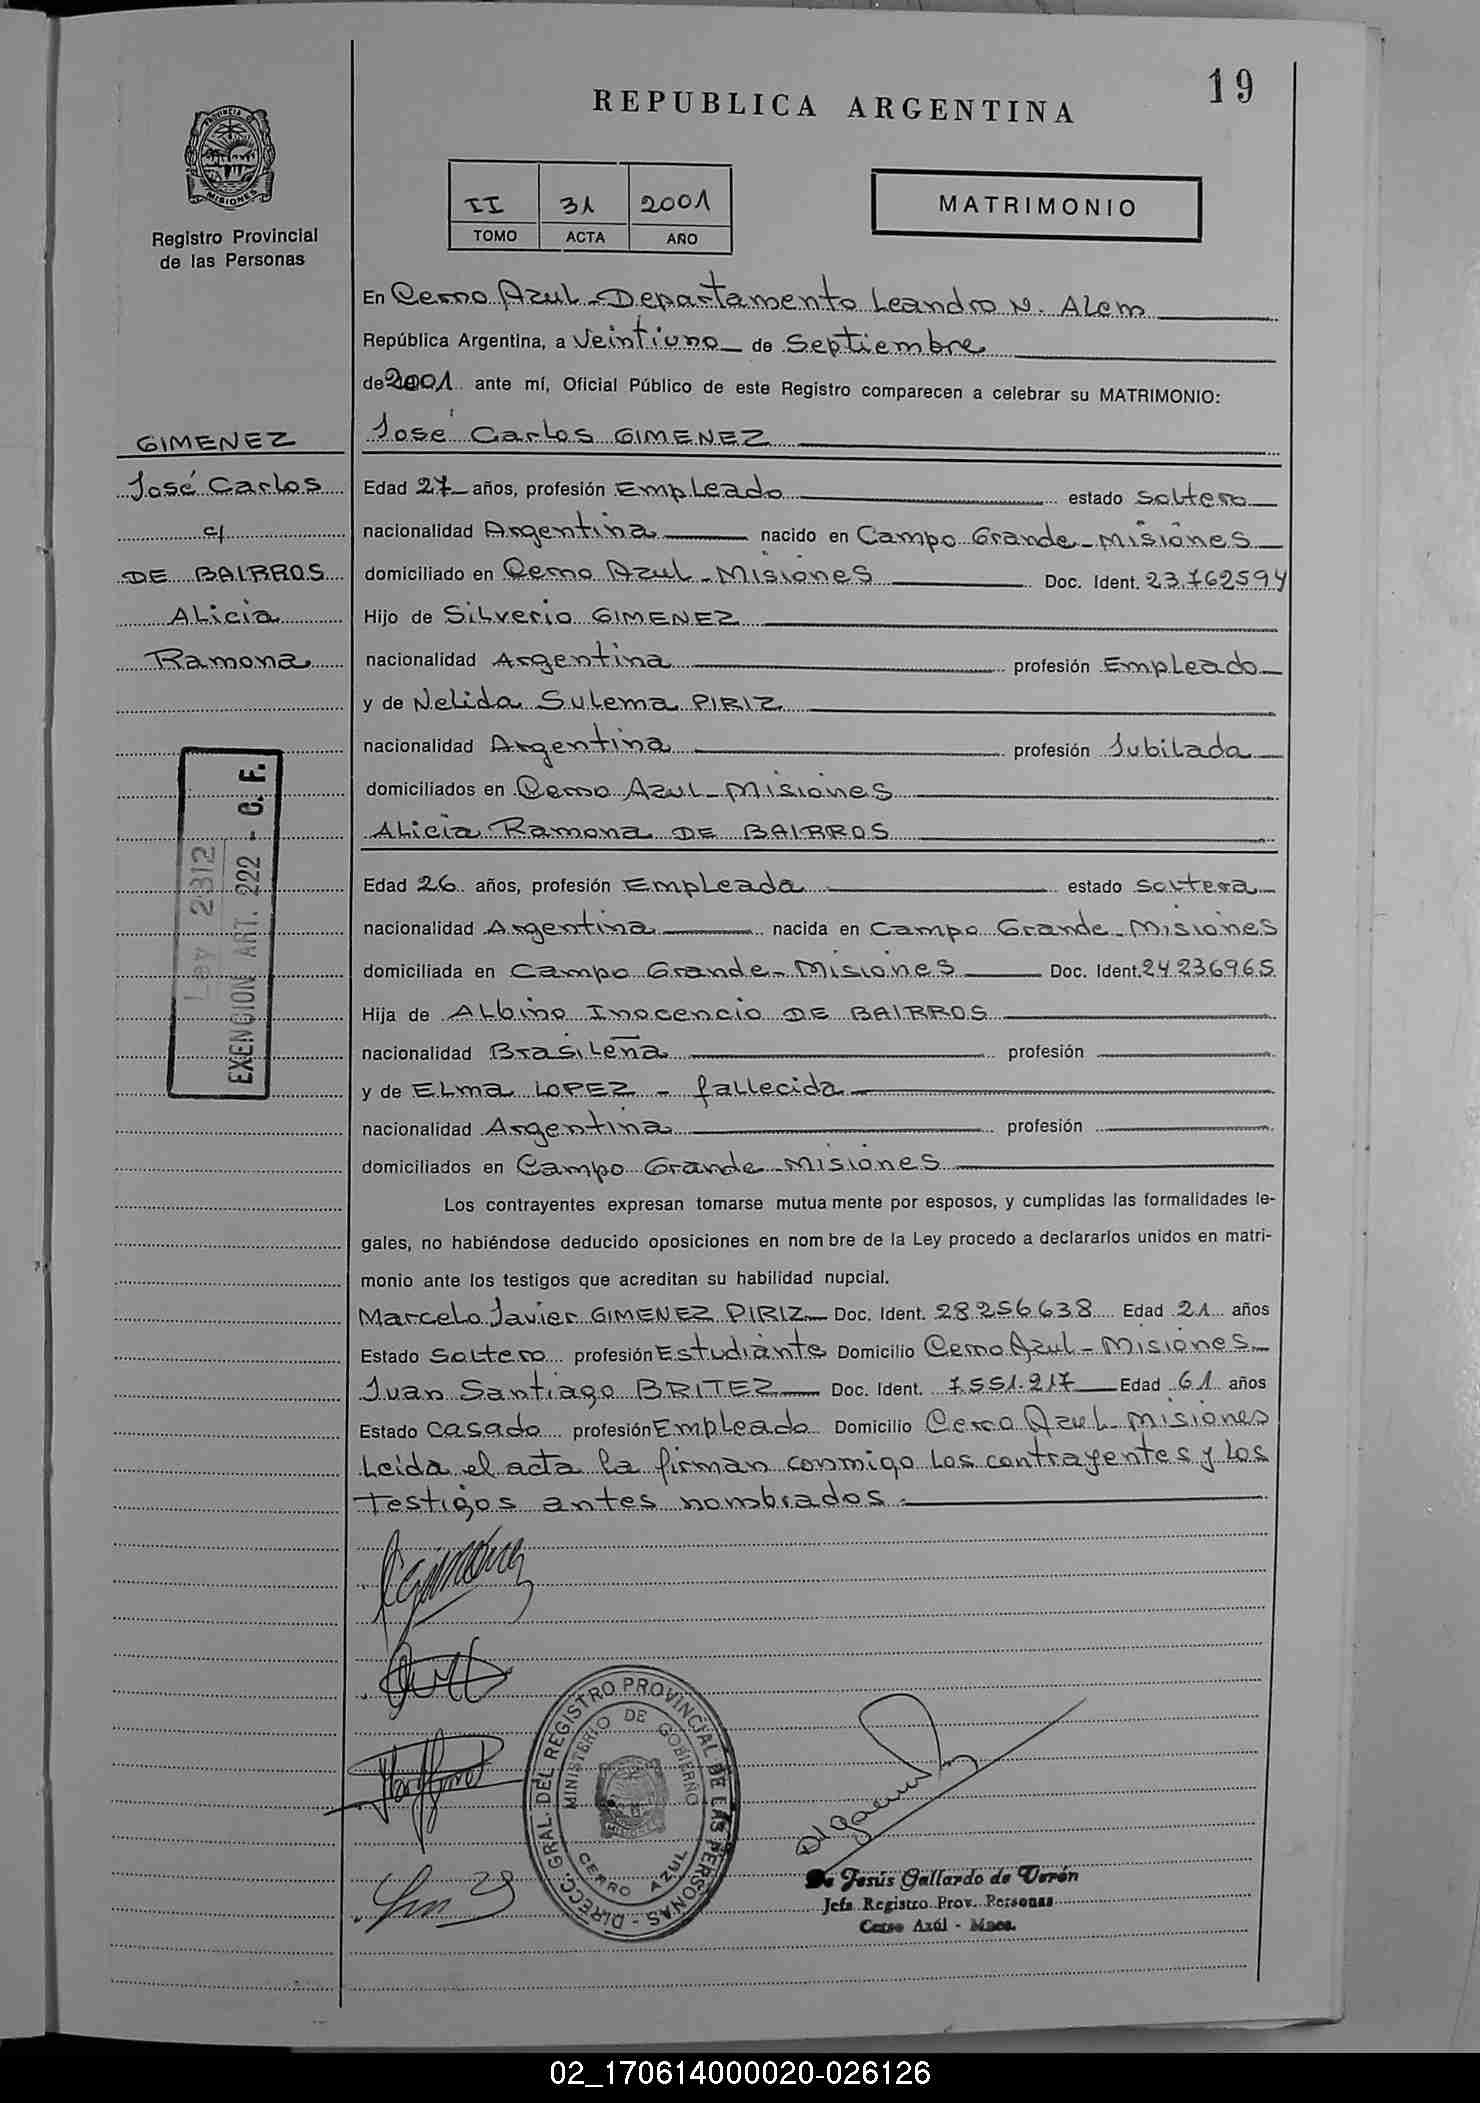 19
REPUBLICA ARGENTINA
PROVINCIA DE
MISIONES
Registro Provincial
de las Personas
II 31 2001
TOMO ACTA AÑO
MATRIMONIO
En Cerro Azul - Departamento Leandro N. Alem
República Argentina, a Veintiuno de Septiembre
de 2001 ante mí, Oficial Público de este Registro comparecen a celebrar su MATRIMONIO:
GIMENEZ
José Carlos
c/
DE BAIRROS
Alicia
Ramona
José Carlos GIMENEZ
Edad 27 años, profesión Empleado estado soltero
nacionalidad Argentina nacido en Campo Grande - Misiones
domiciliado en Cerro Azul - Misiones Doc. Ident. 23.762594
Hijo de Silverio GIMENEZ
nacionalidad Argentina profesión Empleado
y de Nelida Sulema PIRIZ
nacionalidad Argentina profesión Jubilada
domiciliados en Cerro Azul - Misiones
Alicia Ramona DE BAIRROS
Edad 26 años, profesión Empleada estado soltera
nacionalidad Argentina nacida en Campo Grande - Misiones
domiciliada en Campo Grande - Misiones Doc. Ident. 24236965
Hija de Albino Inocencio DE BAIRROS
nacionalidad Brasileña profesión
y de Elma LOPEZ - fallecida
nacionalidad Argentina profesión
domiciliados en Campo Grande - Misiones
Ley 2312
EXENCION ART. 222 - C. F.
Los contrayentes expresan tomarse mutua mente por esposos, y cumplidas las formalidades le-
gales, no habiéndose deducido oposiciones en nom bre de la Ley procedo a declararlos unidos en matri-
monio ante los testigos que acreditan su habilidad nupcial.
Marcelo Javier GIMENEZ PIRIZ Doc. Ident. 28256638 Edad 21 años
Estado Soltero profesión Estudiante Domicilio Cerro Azul - Misiones
Juan Santiago BRITEZ Doc. Ident. 7.551.217 Edad 61 años
Estado Casado profesión Empleado Domicilio Cerro Azul - Misiones
Leida el acta la firman conmigo los contrayentes y los
Testigos antes nombrados.
DIRECC. GRAL. DEL REGISTRO PROVINCIAL DE LAS PERSONAS -
MINISTERIO DE GOBIERNO
CERRO AZUL
De Jesús Gallardo de Verón
Jefa Registro Prov. Personas
Cerro Azúl - Mnes.
02_170614000020-026126